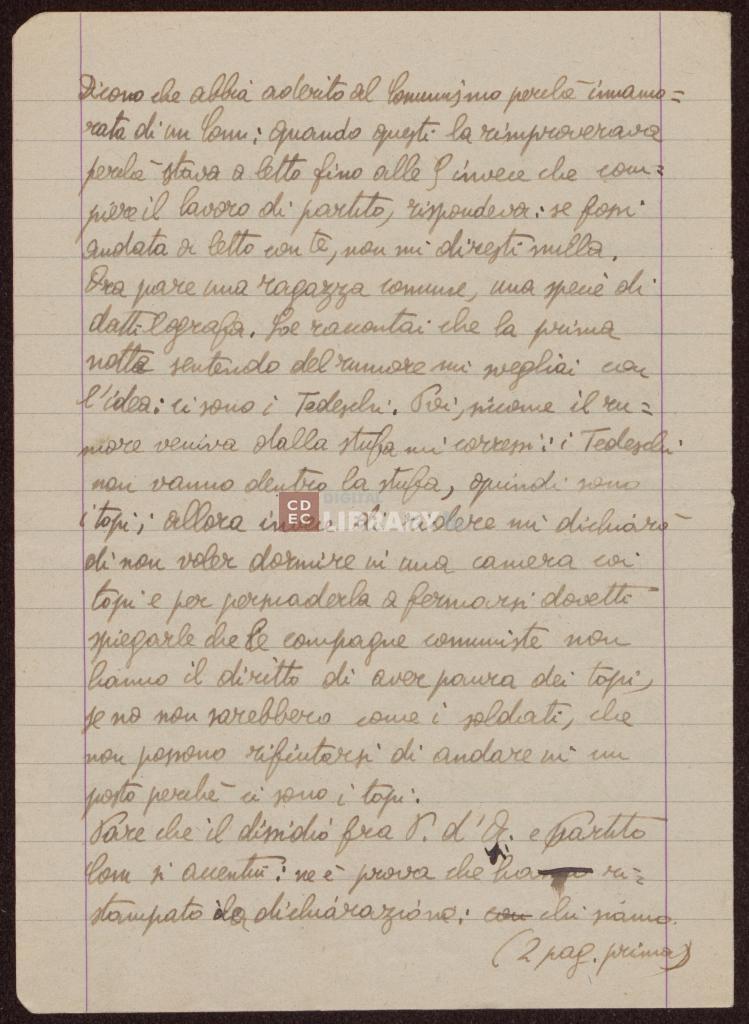 Dicono che abbia aderito al Comunismo perché innamo=
rata di un Com; quando questi la rimproverava
perché stava a letto fino alle 9 invece che com=
piere il lavoro di partito, rispondeva: se fossi
andata a letto con te, non mi diresti nulla.
Ora pare una ragazza comune, una specie di
dattilografa. Le raccontai che la prima
notte sentendo del rumore mi svegliai con
l'idea: ci sono i Tedeschi. Poi, siccome il ru=
more veniva dalla stufa mi corressi: i Tedeschi
non vanno dentro la stufa, quindi sono
i topi; allora invece di ridere mi dichiarò
di non voler dormire in una camera coi
topi e per persuaderla a fermarsi dovetti
spiegarle che le compagne comuniste non
hanno il diritto di aver paura dei topi,
se no non sarebbero come i soldati, che
non possono rifiutarsi di andare in un
posto perché ci sono i topi.
Pare che il dissidio fra P. d'A. e Partito
Com si accentui: ne è prova che si ri=
stampato la dichiarazione: con chi siamo.
(2 pag. prima)
CD
EC
DIGITAL
LIBRARY